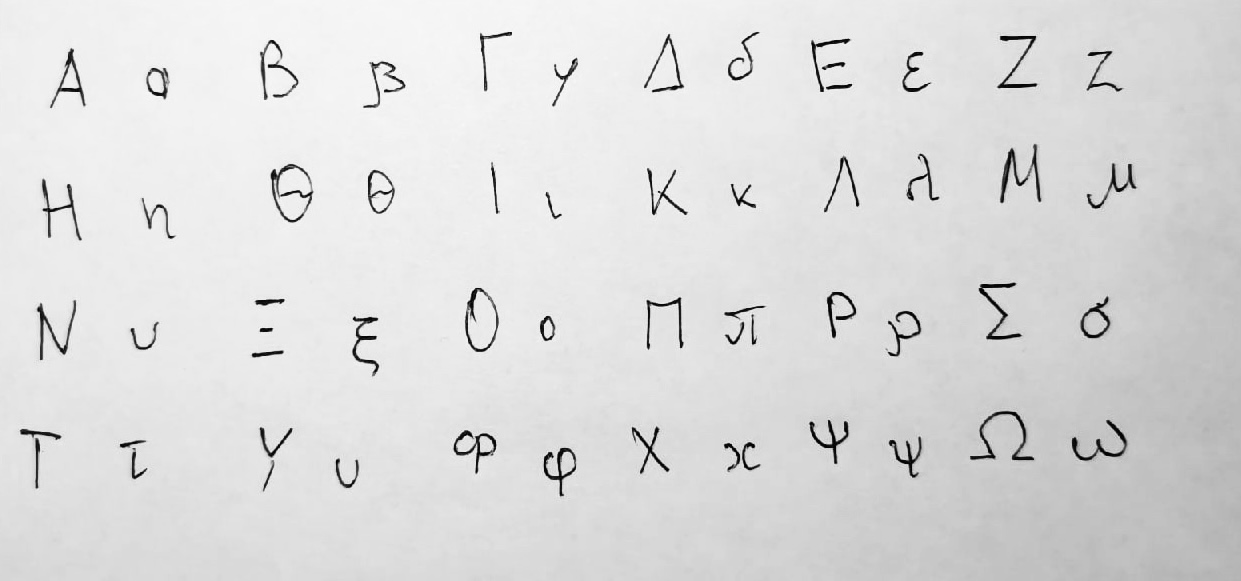 Α α Β β Γ γ Δ δ Ε ε Ζ ζ
Η η Θ θ Ι ι Κ κ Λ λ Μ μ
Ν υ Ξ ξ Ο ο Π π Ρ ρ Σ σ
Τ τ Υ υ φ φ Χ χ Ψ ψ Ω ω